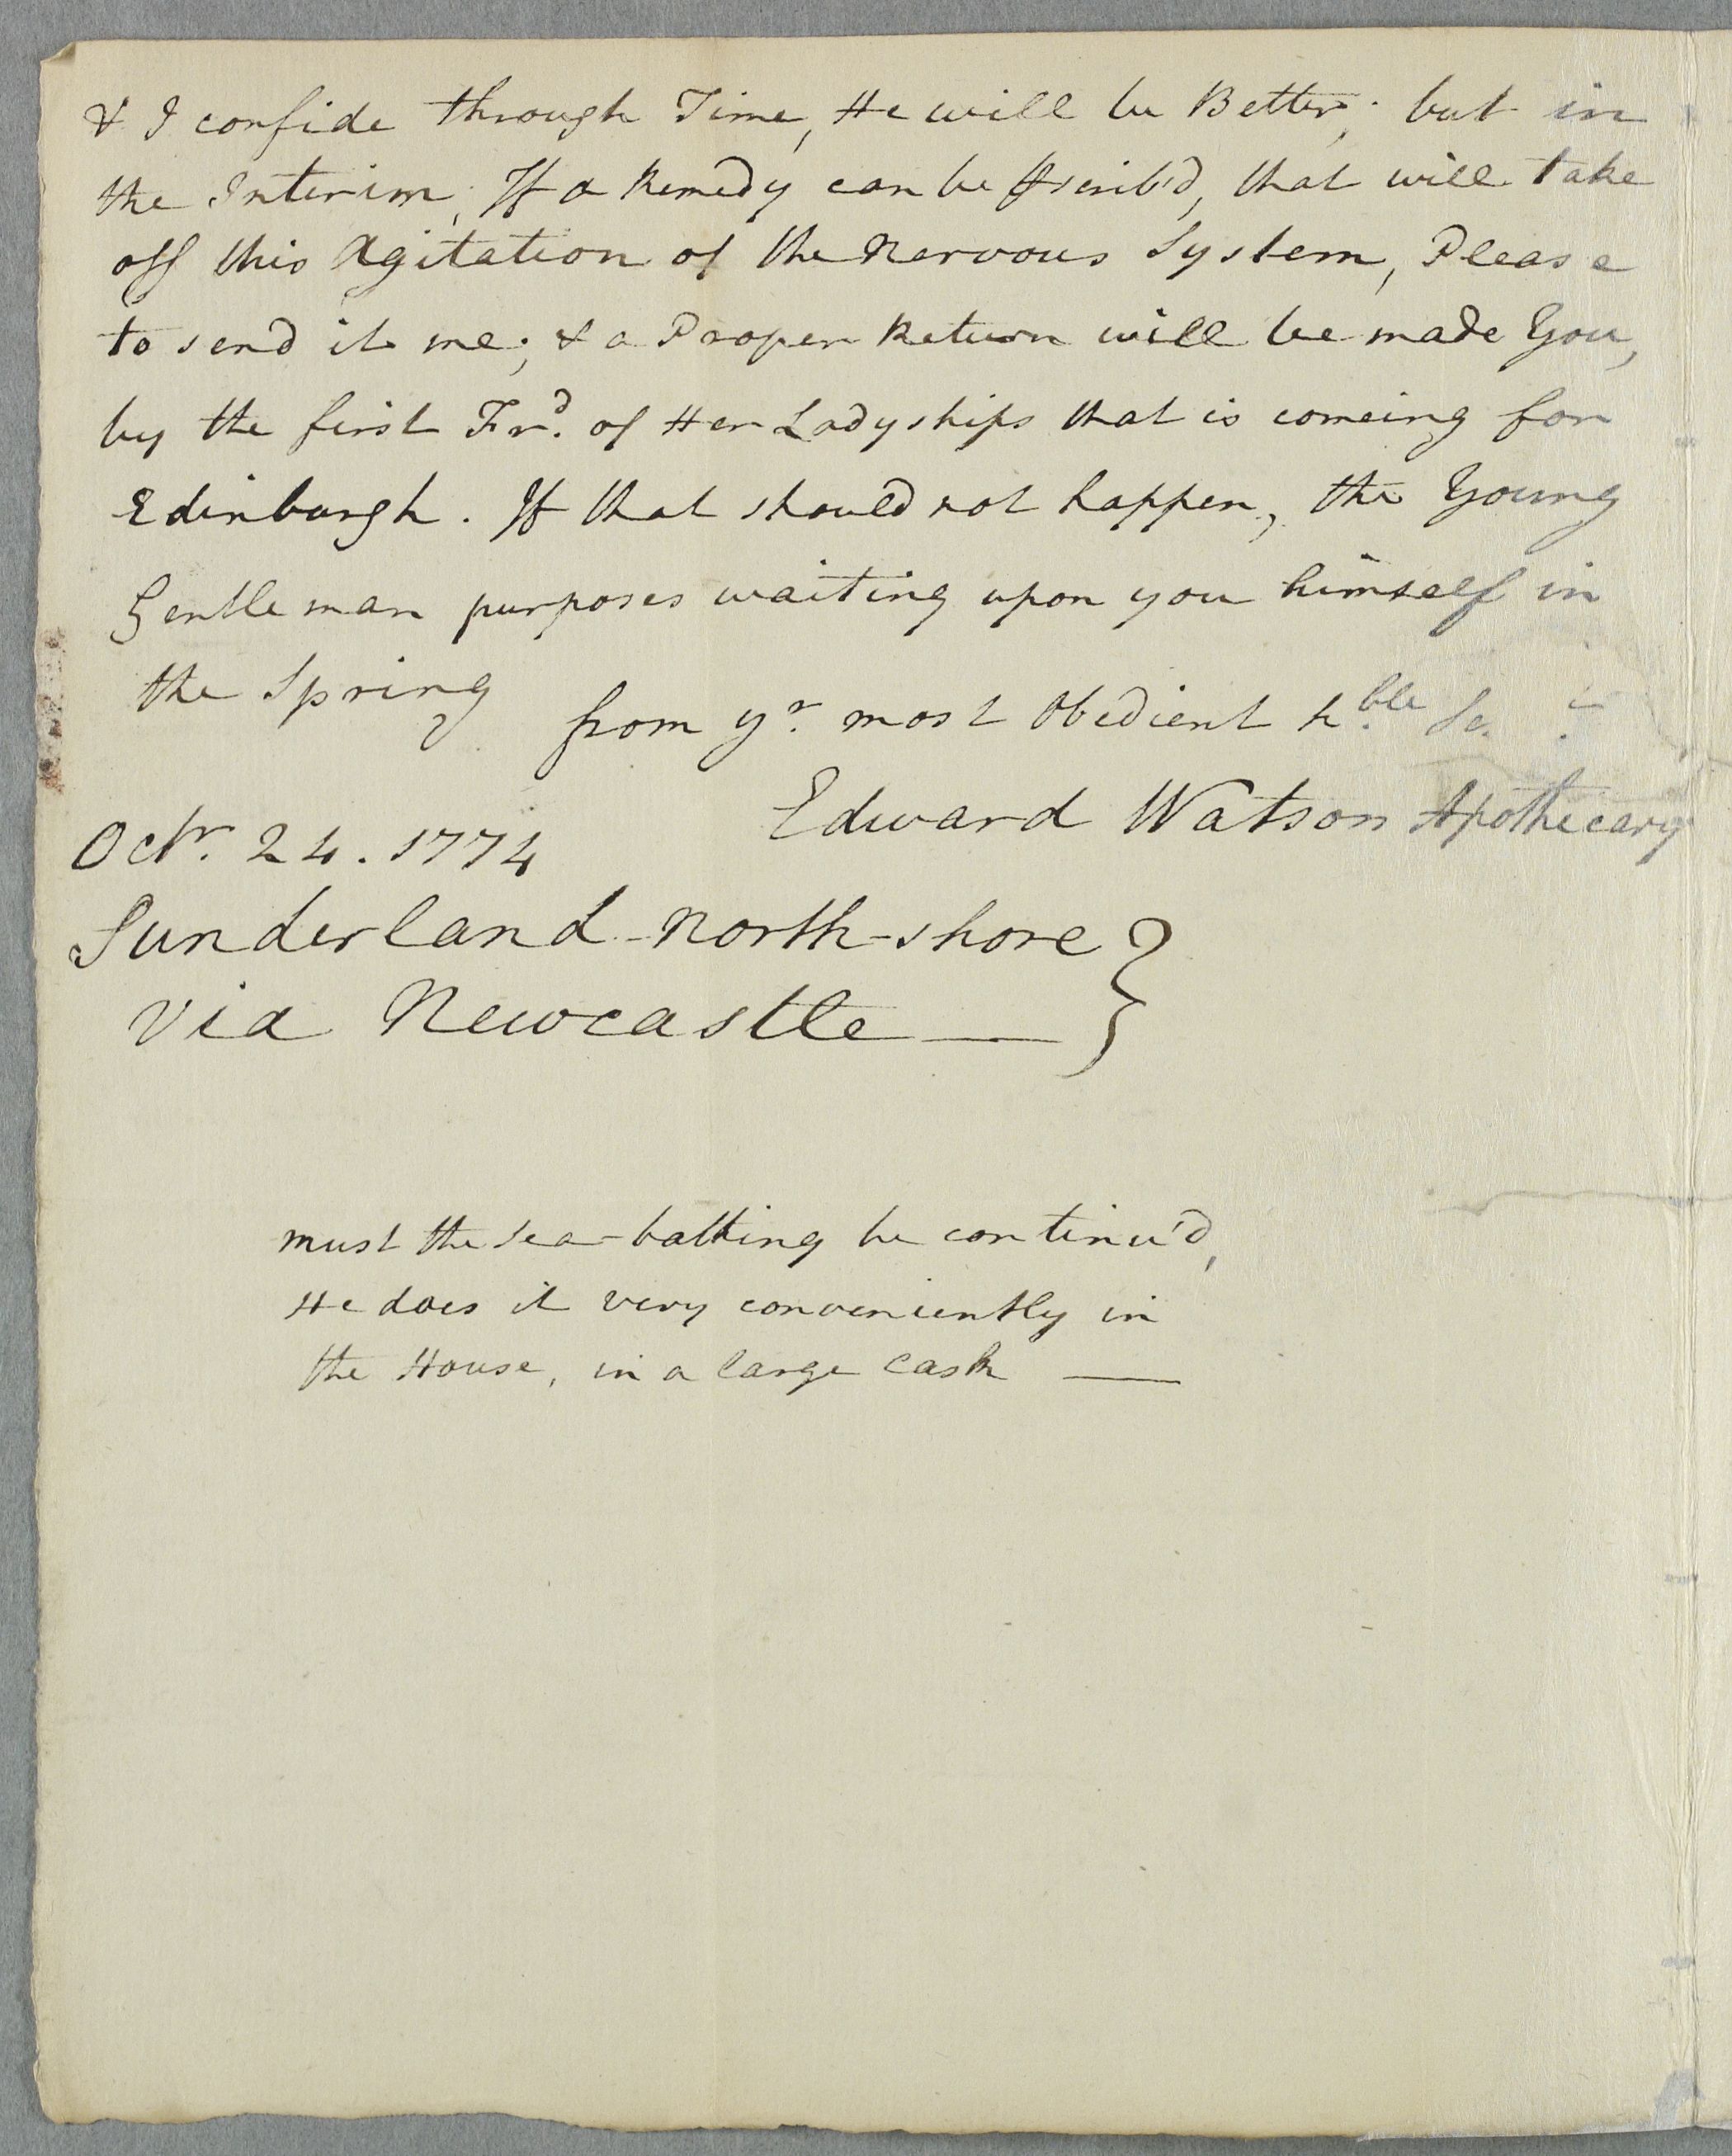 & I confide through Time, He will be Better; but in
the Interim, If a Remedy can be p'scrib'd, that will take
off this Agitation of the Nervous System, Please
to send it me; & a Proper Return will be made You,
by the first Frd. of Her Ladyships that is comeing for
Edinburgh. If that should not happen, the Young
Gentleman purposes waiting upon you himself in
the Spring
from yr. most Obedient hble
Edward Watson Apothecary
Octr. 24. 1774
Sunderland-North-shore
via Newcastle —
must the Sea-bathing be continu'd,
He does it very conveniently in
the House, in a large Cask —